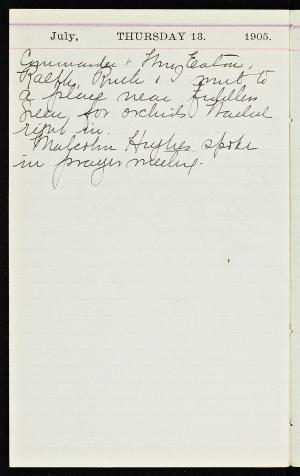 July, THURSDAY 13. 1905.
Commander & Mrs Eaton,
Ralph, Ruth & I went to
a place near Fiddlers
Green for orchids. Waded
right in.
Malcolm Hughes spoke
in prayer meeting.